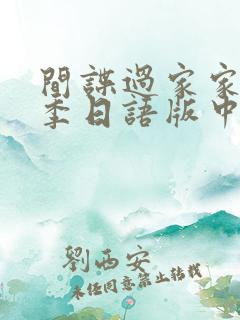 間諜過家家
季日語版中
劉西安
未经同意禁止转载